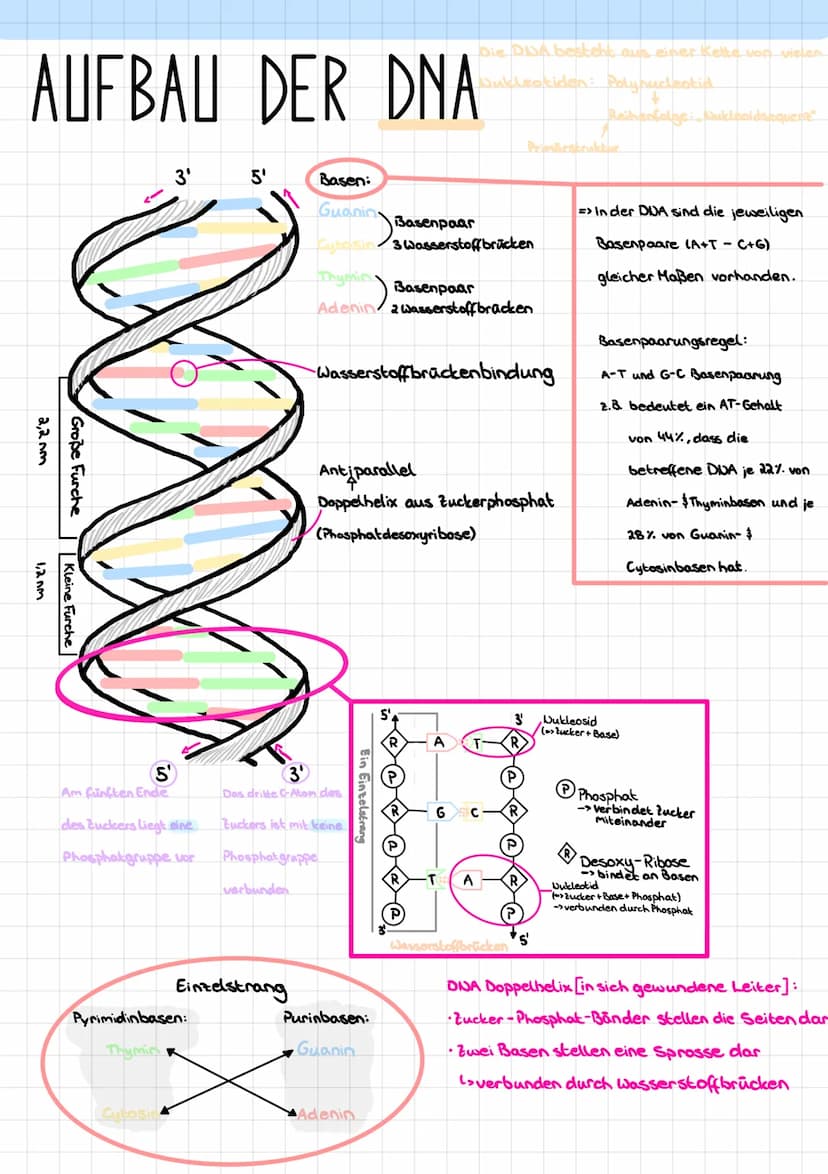 AUFBAU DER DNA
Die DNA besteht aus einer Kette von vielen
Nukleotiden: Polynucleotid
↓
Reihenfolge: „Nukleotidsequenz"
Primärstruktur
3' 5'
Basen:
Guanin
Cytosin
Basenpaar
3 Wasserstoffbrücken
Thymin
Adenin
Basenpaar
2 Wasserstoffbrücken
Wasserstoffbrückenbindung
Antiparallel
Doppelhelix aus Zuckerphosphat
(Phosphatdesoxyribose)
Große Furche
2,2 nm
Kleine Furche
1,2 nm
=> In der DNA sind die jeweiligen
Basenpaare (A+T - C+G)
gleicher Maßen vorhanden.
Basenpaarungsregel:
A-T und G-C Basenpaarung
z.B. bedeutet ein AT-Gehalt
von 44%, dass die
betreffene DNA je 22% von
Adenin- & Thyminbasen und je
28% von Guanin- &
Cytosinbasen hat.
5'
3'
Am fünften Ende
des Zuckers liegt eine
Phosphatgruppe vor
Das dritte C-Atom des
Zuckers ist mit keine
Phosphatgruppe
verbunden
5' 3'
Ein Einzelstrang
R A T R
P P
R G C R
P P
R T A R
P P
3' 5'
Wasserstoffbrücken
Nukleosid
(=> Zucker + Base)
P Phosphat
-> verbindet Zucker
Miteinander
R Desoxy-Ribose
-> bindet an Basen
Nukleotid
(=> Zucker + Base + Phosphat)
-> verbunden durch Phosphat
Einzelstrang
Pyrimidinbasen: Purinbasen:
Thymin Guanin
Cytosin Adenin
DNA Doppelhelix [in sich gewundene Leiter]:
· Zucker-Phosphat-Bänder stellen die Seiten dar
· Zwei Basen stellen eine Sprosse dar
↳ verbunden durch Wasserstoffbrücken